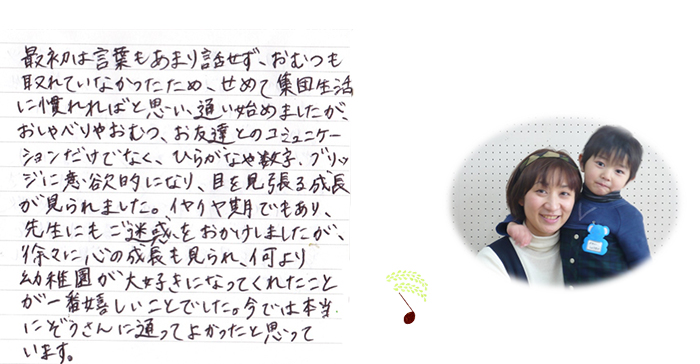 最初は言葉もあまり話せず、おむつも
取れていなかったため、せめて集団生活
に慣れればと思い、通い始めましたが、
おしゃべりやおむつ、お友達とのコミュニケー
ションだけでなく、ひらがなや数字、ブリッ
ジに意欲的になり、目を見張る成長
が見られました。イヤイヤ期でもあり、
先生にもご迷惑をおかけしましたが、
徐々に心の成長も見られ、何より
幼稚園が大好きになってくれたこと
が一番嬉しいことでした。今では本当
にぞうさんに通ってよかったと思って
います。